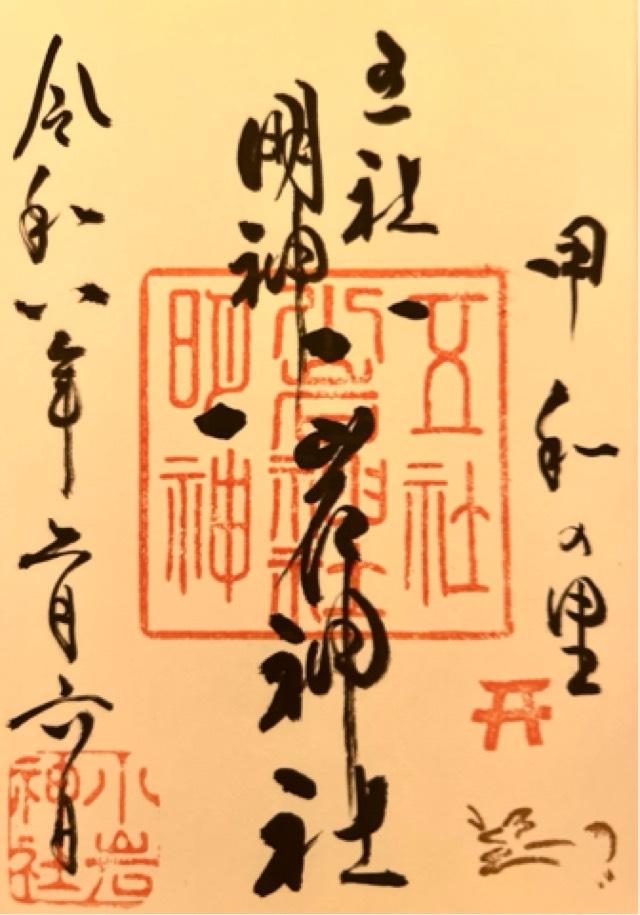 甲和の里
五社
明神
小岩神社
令和八年二月六日
五社
小岩神社
明神
小岩
神社